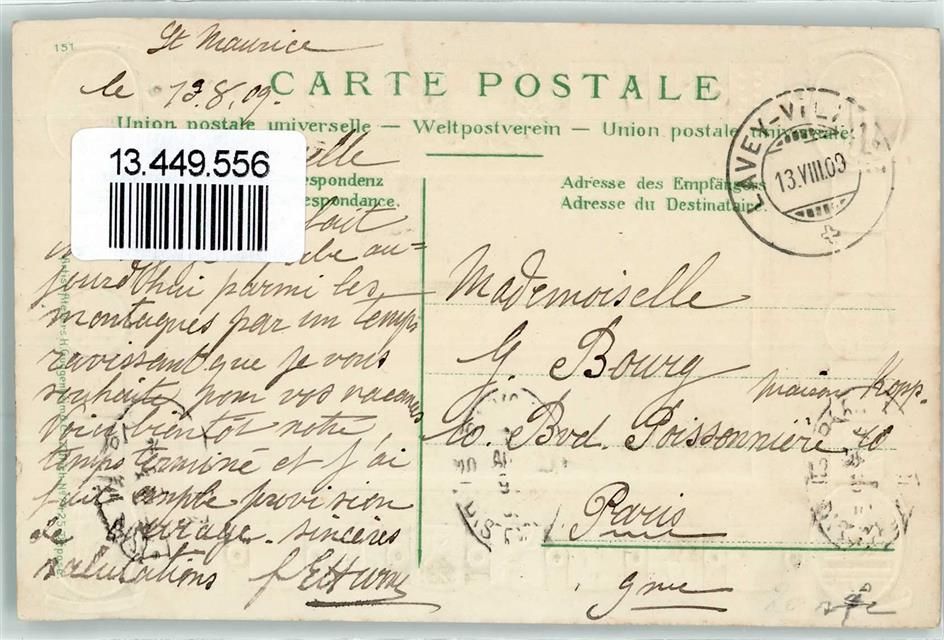 151
St Maurice
le 13.8.09.
CARTE POSTALE
Union postale universelle — Weltpostverein — Union postale universelle.
elle
13.449.556
espondenz
espondance.
Adresse des Empfängers
Adresse du Destinataire.
LAVEY-VIL
13.VIII.09
fait
au=
jourd'hui parmi les
montagnes par un temps
ravissant que je vous
souhaite pour vos vacances
Voici bientôt notre
temps terminé et j'ai
fait ample provision
de courage. sincères
salutations
Mademoiselle
G. Bourg
maison Kopp.
10. Bvd. Poissonnière 10
Paris